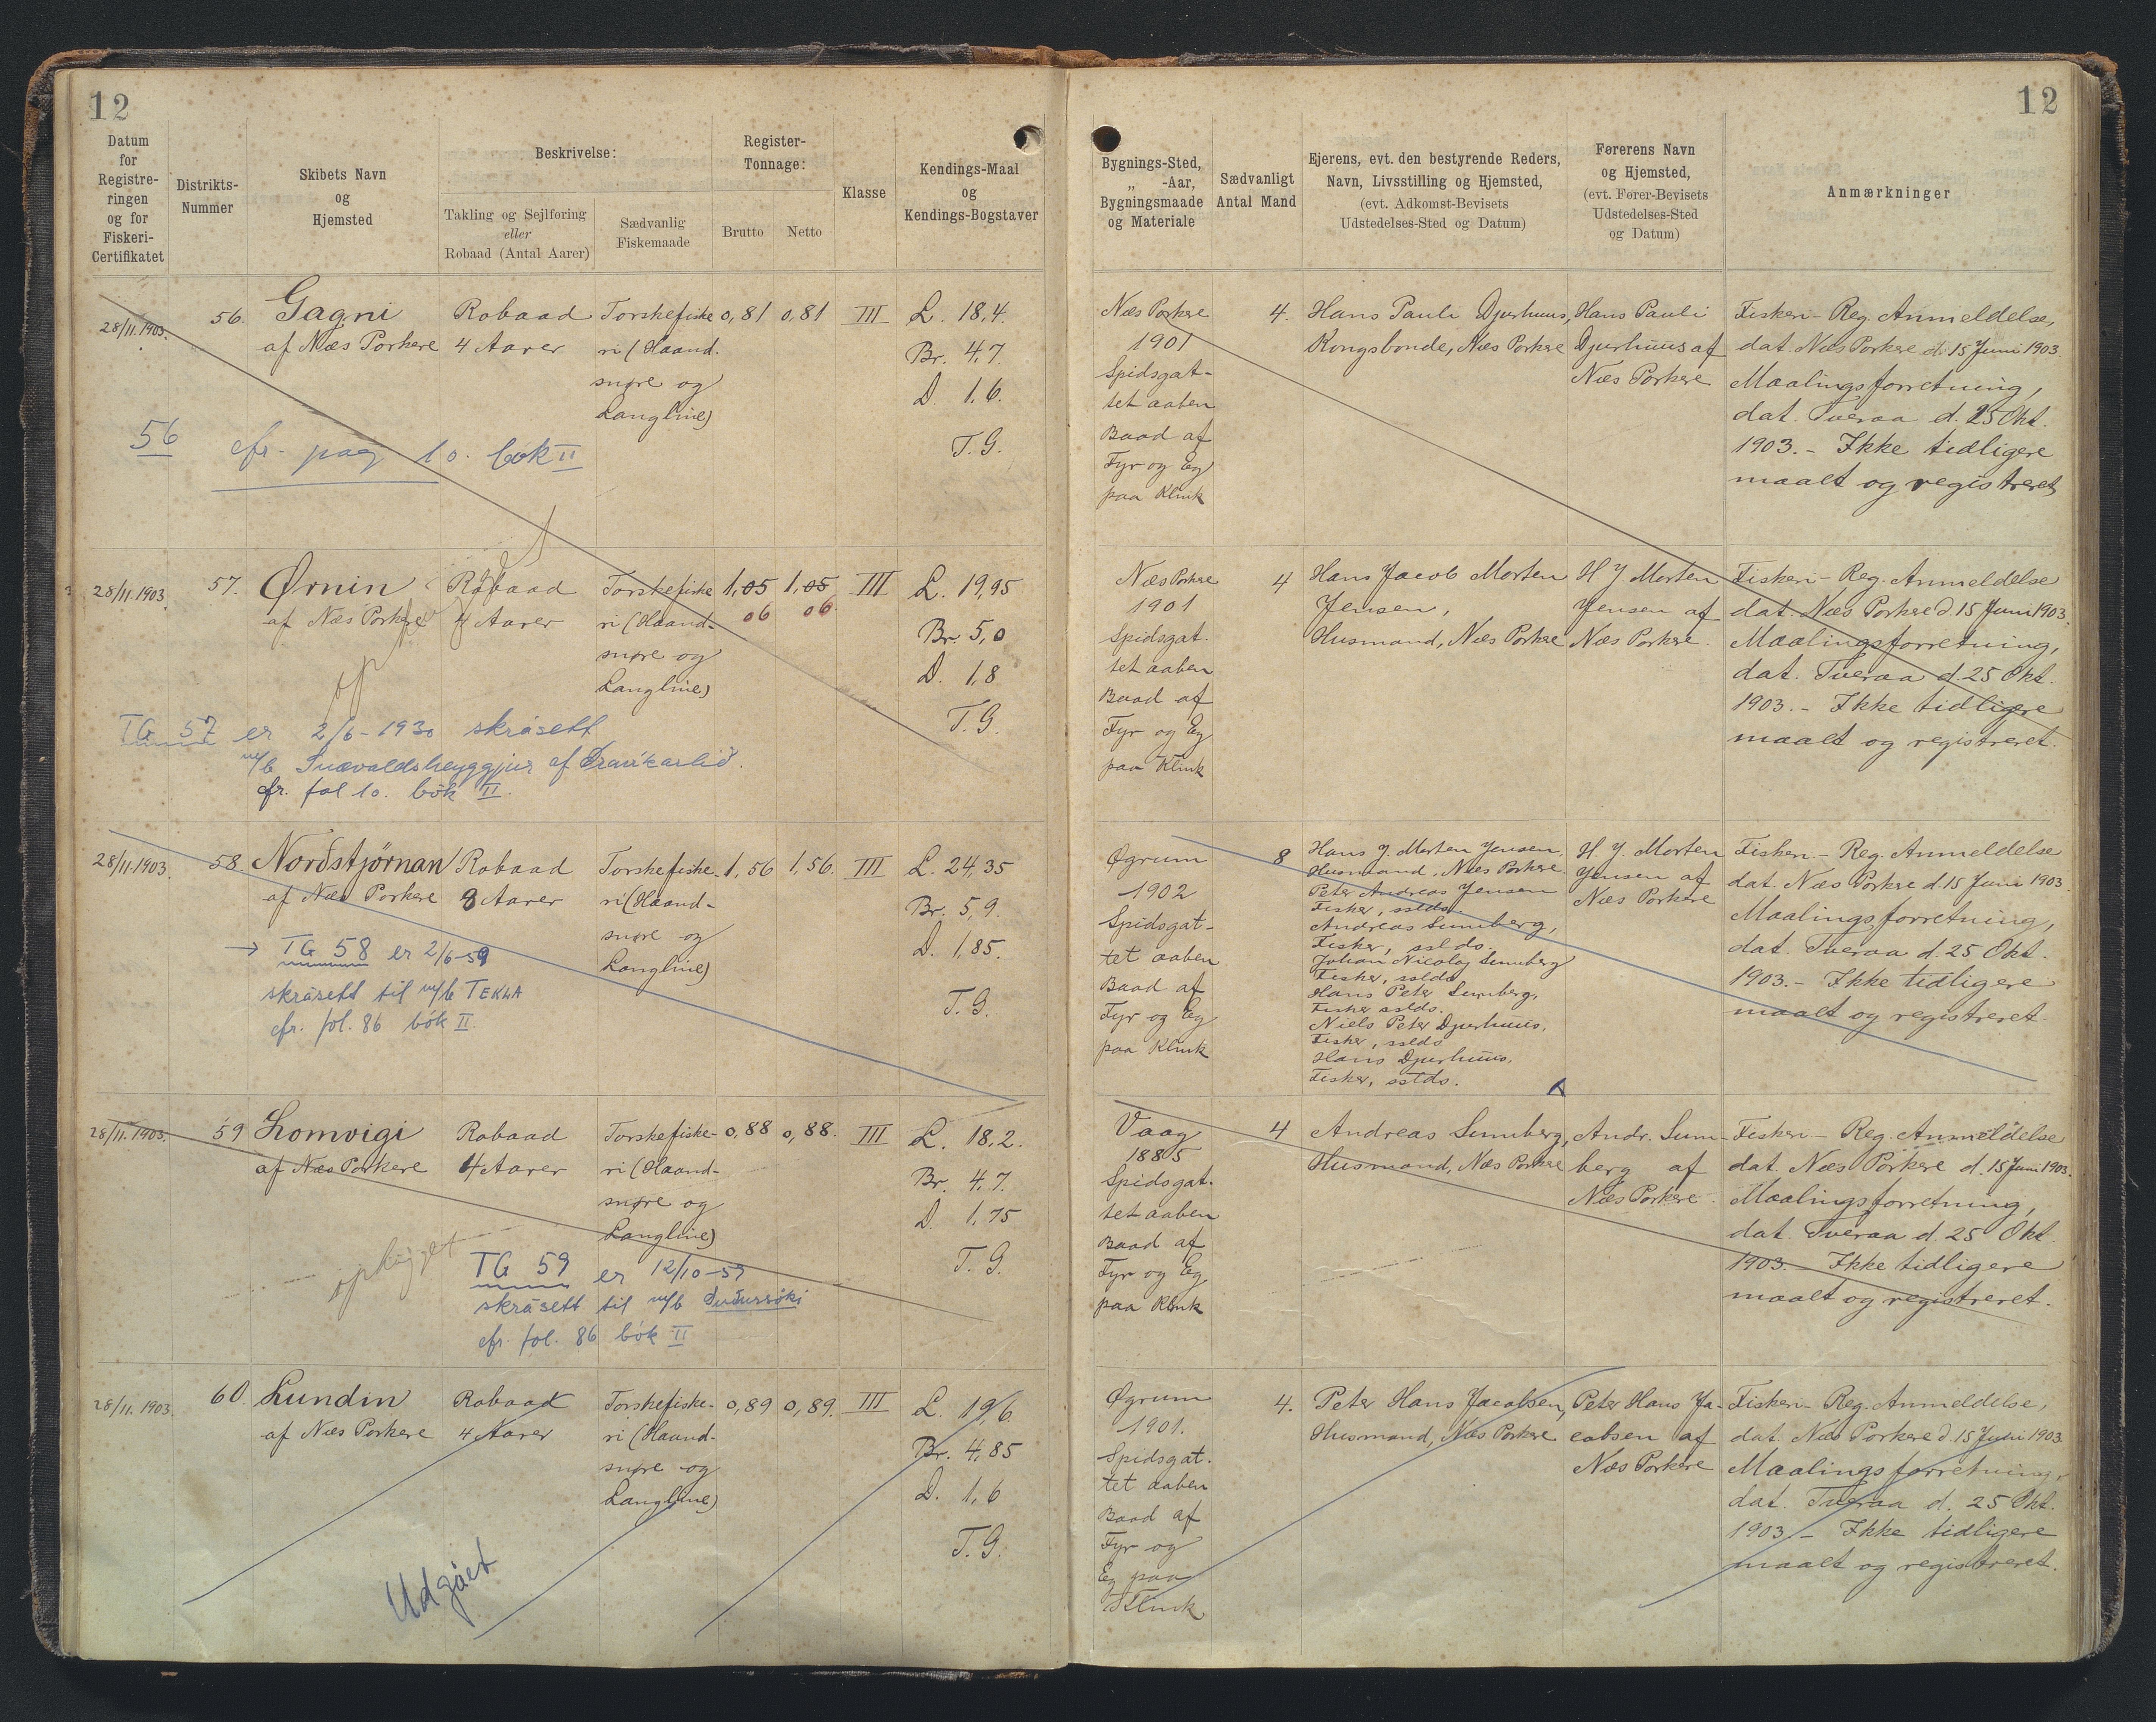 12
Datum
for
Registre-
ringen
og for
Fiskeri-
Certifikatet
Distrikts-
Nummer
Skibets Navn
og
Hjemsted
Beskrivelse:
Takling og Sejlføring
eller
Robaad (Antal Aarer)
Sædvanlig
Fiskemaade
Register-
Tonnage:
Brutto
Netto
Klasse
Kendings-Maal
og
Kendings-Bogstaver
28/11.1903.
56.
Gagni
af Næs Porkere
Robaad
4 Aarer
Torskefiske
ri (Haand-
snøre og
Langline)
0,81
0,81
III
L. 18,4.
Br. 4,7
D. 1.6.
T. G.
56 cfr. pag 10. bók II
28/11.1903.
57.
Ørnin
af Næs Porkere
Robaad
4 Aarer
Torskefiske
ri (Haand-
snøre og
Langline)
1,05
06
1,05
06
III
L. 19,95
Br. 5,0
D. 1,8
T. G.
TG 57 er 2/6-1930 skrásett
m/b af
cfr. fol 10. bók II.
28/11.1903.
58.
Norðstjørnan
af Næs Porkere
Robaad
8 Aarer
Torskefiske-
ri (Haand-
snøre og
Langline)
1,56
1,56.
III
L. 24,35
Br. 5,9.
D. 1,85.
T. G.
→ TG 58 er 2/6-59
skrásett til m/b TEKLA
cfr. fol. 86 bók II.
28/11.1903.
59
Lomvigi
af Næs Porkere
Robaad
4 Aarer
Torskefiske-
ri (Haand-
snøre og
Langline)
0,88
0,88.
III
L. 18,2.
Br. 4,7.
D. 1,75
T. G.
ophugget
TG 59 er 12/10-59
skrásett til m/b
cfr. fol. 86 bók II
28/11.1903.
60.
Lundin
af Næs Porkere
Robaad
4 Aarer
Torskefiske-
ri (Haand-
snøre og
Langline)
0,89
0,89.
III
L. 19,6
Br. 4,85
D. 1,6
T. G.
Udgået
12
Bygnings-Sted,
„ -Aar,
Bygningsmaade
og Materiale
Sædvanligt
Antal Mand
Ejerens, evt. den bestyrende Reders,
Navn, Livsstilling og Hjemsted,
(evt. Adkomst-Bevisets
Udstedelses-Sted og Datum)
Førerens Navn
og Hjemsted,
(evt. Fører-Bevisets
Udstedelses-Sted
og Datum)
Anmærkninger
Næs Porkere
1901
Spidsgat-
tet aaben
Baad af
Fyr og Eg
paa Klink
4.
Hans Pauli Djurhuus,
Kongsbonde, Næs Porkere
Hans Pauli
Djurhuus af
Næs Porkere
Fiskeri-Reg. Anmeldelse,
dat. Næs Porkere d. 15 Juni 1903.
Maalingsforretning,
dat. Tveraa d. 25 Okt.
1903. - Ikke tidligere
maalt og registreret
Næs Porkere
1901
Spidsgat-
tet aaben
Baad af
Fyr og Eg
paa Klink
4
Hans Jacob Morten
Jensen,
Husmand, Næs Porkere
H J Morten
Jensen af
Næs Porkere.
Fiskeri-Reg. Anmeldelse
dat. Næs Porkere d. 15 Juni 1903.
Maalingsforretning,
dat. Tveraa d. 25 Okt.
1903. - Ikke tidligere
maalt og registreret.
Øgrum
1902
Spidsgat-
tet aaben
Baad af
Fyr og Eg
paa Klink
8
Hans J. Morten Jensen,
Husmand, Næs Porkere
Peter Andreas Jensen
Fisker, sslds.
Andreas Sumberg,
Fisker, sslds.
Johan Nicolaj Sumberg
Fisker, sslds
Hans Peter Sumberg,
Fisker sslds.
Niels Peter Djurhuus,
Fisker, sslds
Hans Djurhuus,
Fisker, sslds.
H. J. Morten
Jensen af
Næs Porkere
Fiskeri-Reg. Anmeldelse
dat. Næs Porkere d. 15 Juni 1903.
Maalingsforretning,
dat. Tveraa d. 25 Okt.
1903. - Ikke tidligere
maalt og registreret.
Vaag
1885
Spidsgat-
tet aaben
Baad af
Fyr og Eg
paa Klink
4
Andreas Sumberg,
Husmand, Næs Porkere
Andr. Sum-
berg af
Næs Porkere.
Fiskeri-Reg. Anmeldelse
dat. Næs Porkere d. 15 Juni 1903.
Maalingsforretning,
dat. Tveraa d. 25 Okt.
1903. Ikke tidligere
maalt og registreret.
Øgrum
1901.
Spidsgat-
tet aaben
Baad af
Fyr og
Eg paa
Klink
4.
Peter Hans Jacobsen,
Husmand, Næs Porkere
Peter Hans Ja-
cobsen af
Næs Porkere
Fiskeri-Reg. Anmeldelse,
dat. Næs Porkere d. 15 Juni 1903
Maalingsforretning,
dat. Tveraa d. 25 Okt.
1903 - Ikke tidligere
maalt og registreret.